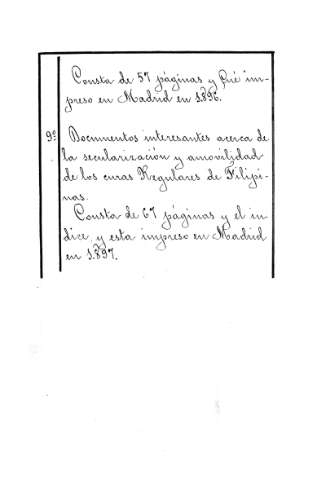 Consta de 57 páginas y fué im-
preso en Madrid en 1.896.
9º Documentos interesantes acerca de
la secularización y amovilidad
de los curas Regulares de Filipi-
nas.
Consta de 67 páginas y el ín-
dice y esta impreso en Madrid
en 1.897.